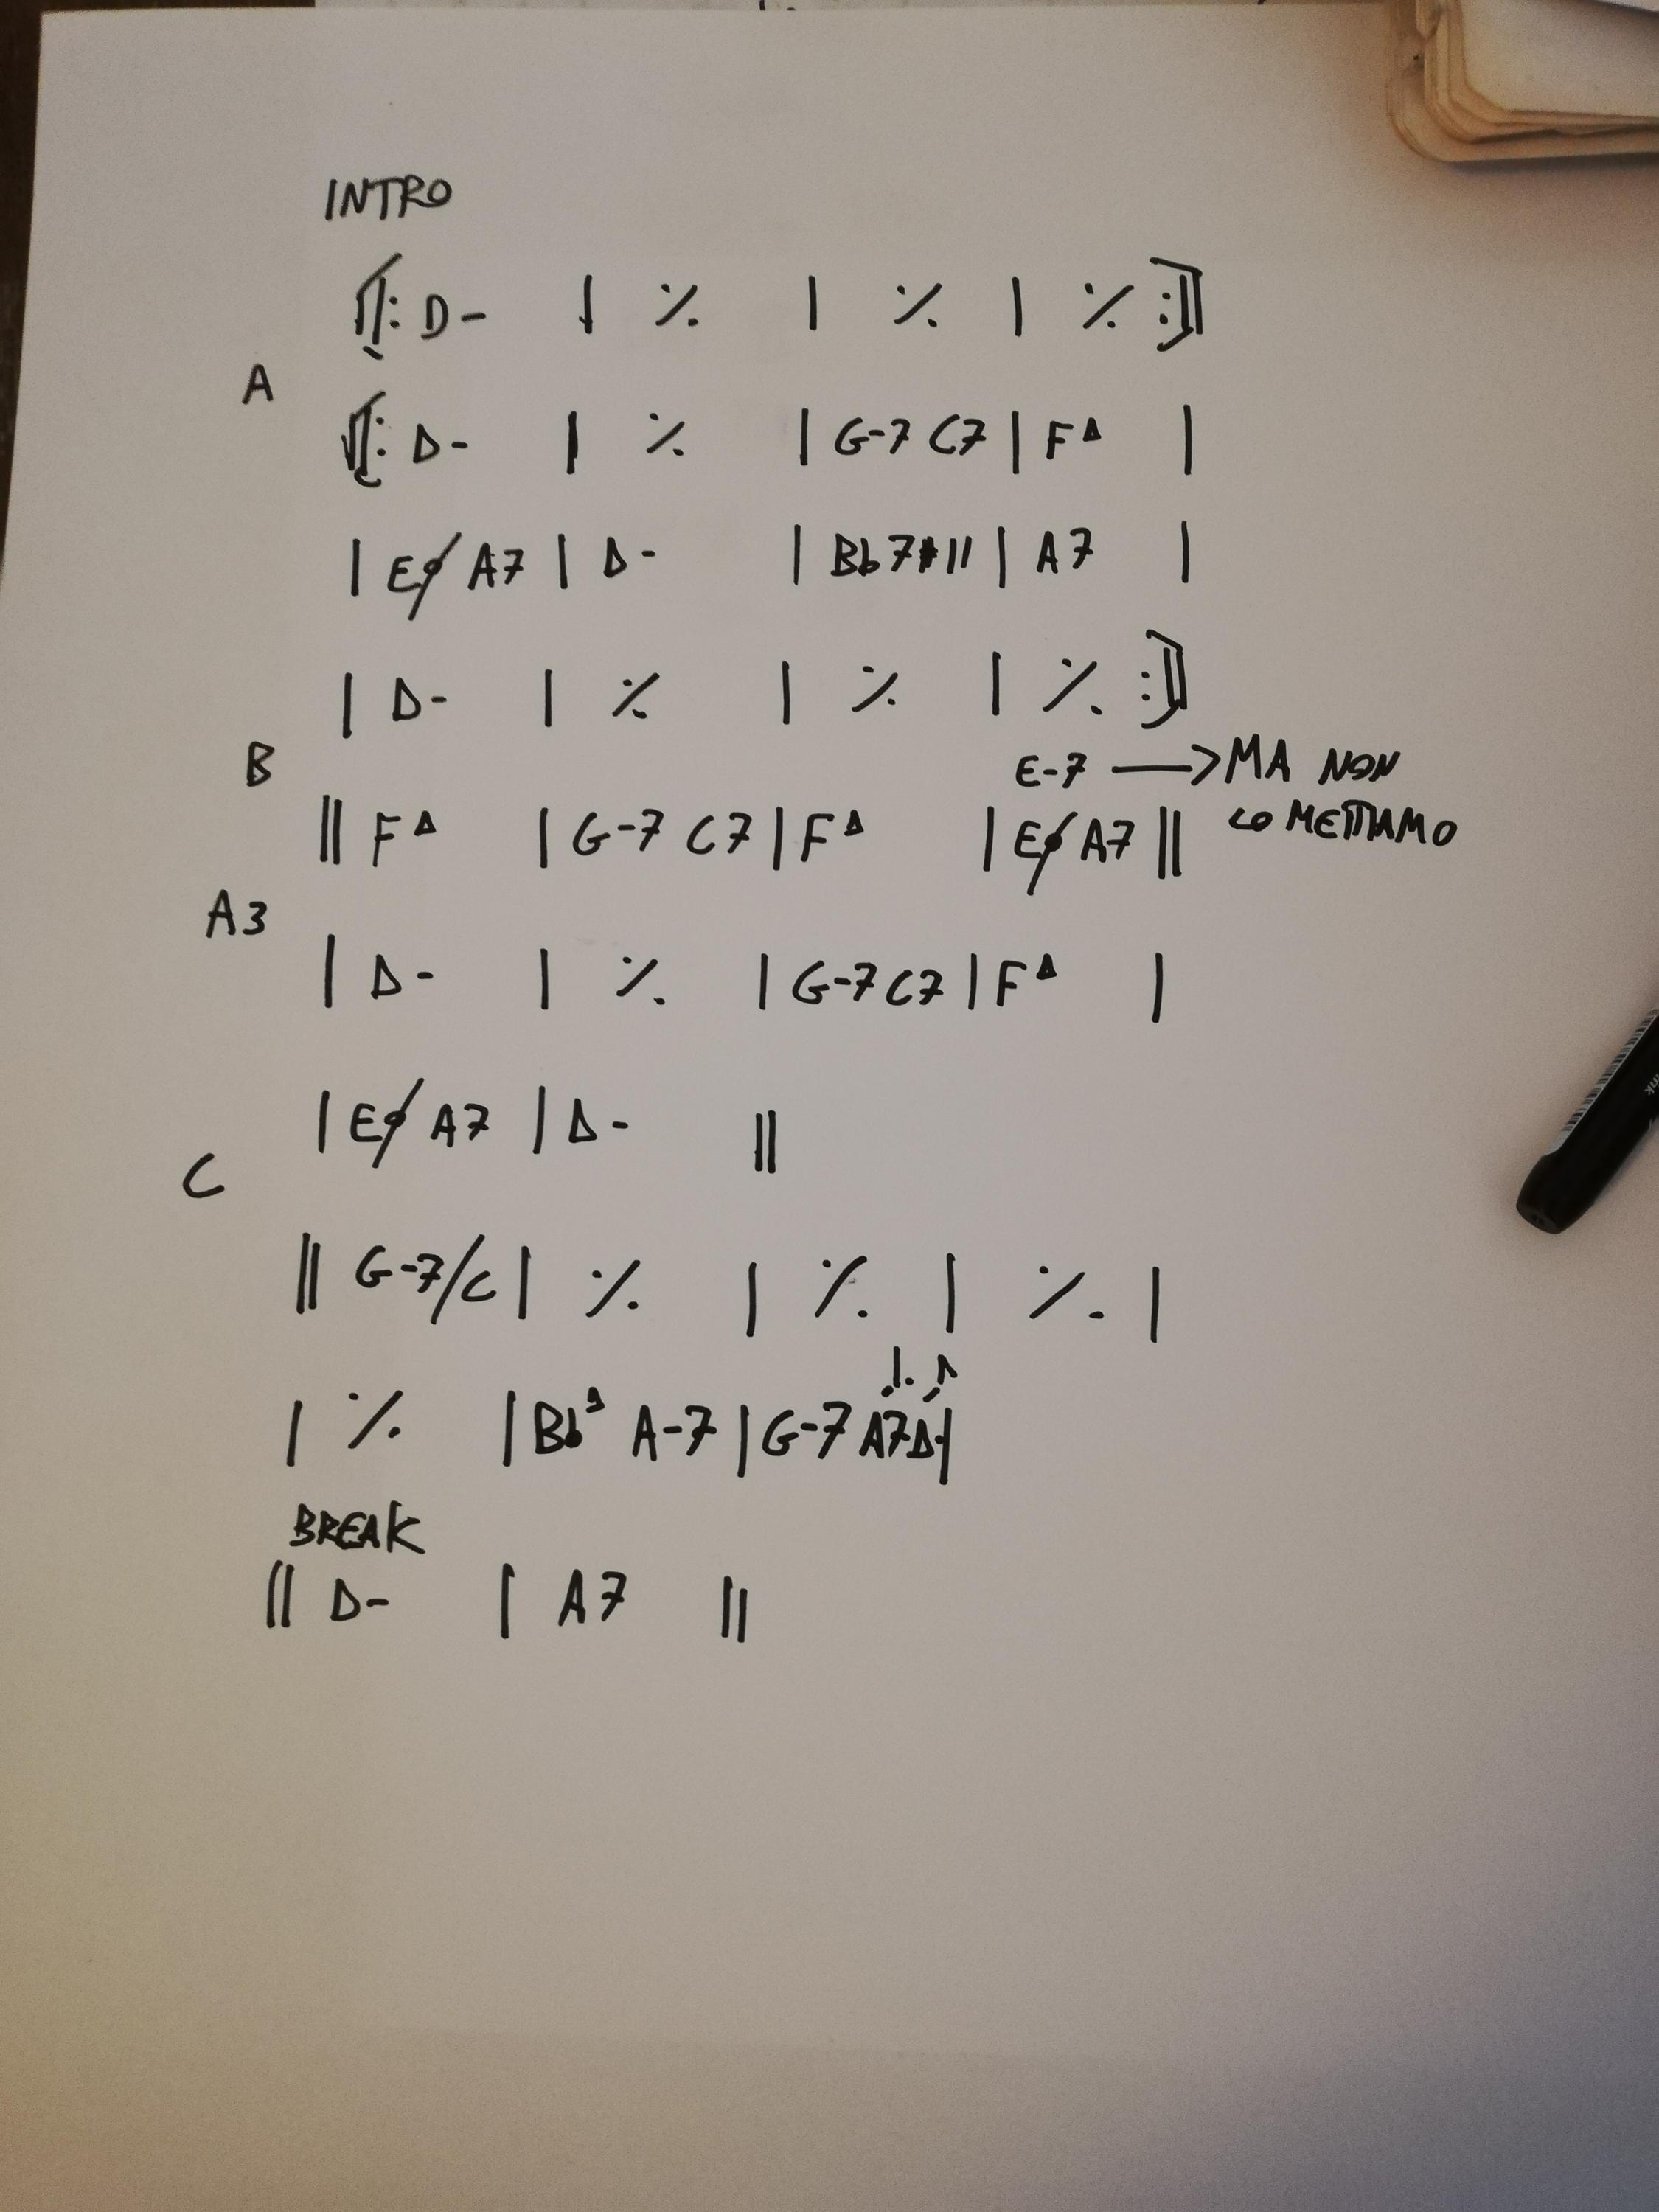 INTRO
‖: D- | ٪ | ٪ | ٪ :‖
A
‖: D- | ٪ | G-7 C7 | F∆ |
| Eø A7 | D- | Bb7#11 | A7 |
| D- | ٪ | ٪ | ٪ :‖
B
E-7 → MA NON
LO METTIAMO
‖ F∆ | G-7 C7 | F∆ | Eø A7 ‖
A3
| D- | ٪ | G-7 C7 | F∆ |
| Eø A7 | D- ‖
C
‖ G-7/C | ٪ | ٪ | ٪ |
| ٪ | Bb∆ A-7 | G-7 A7 D- |
BREAK
‖ D- | A7 ‖